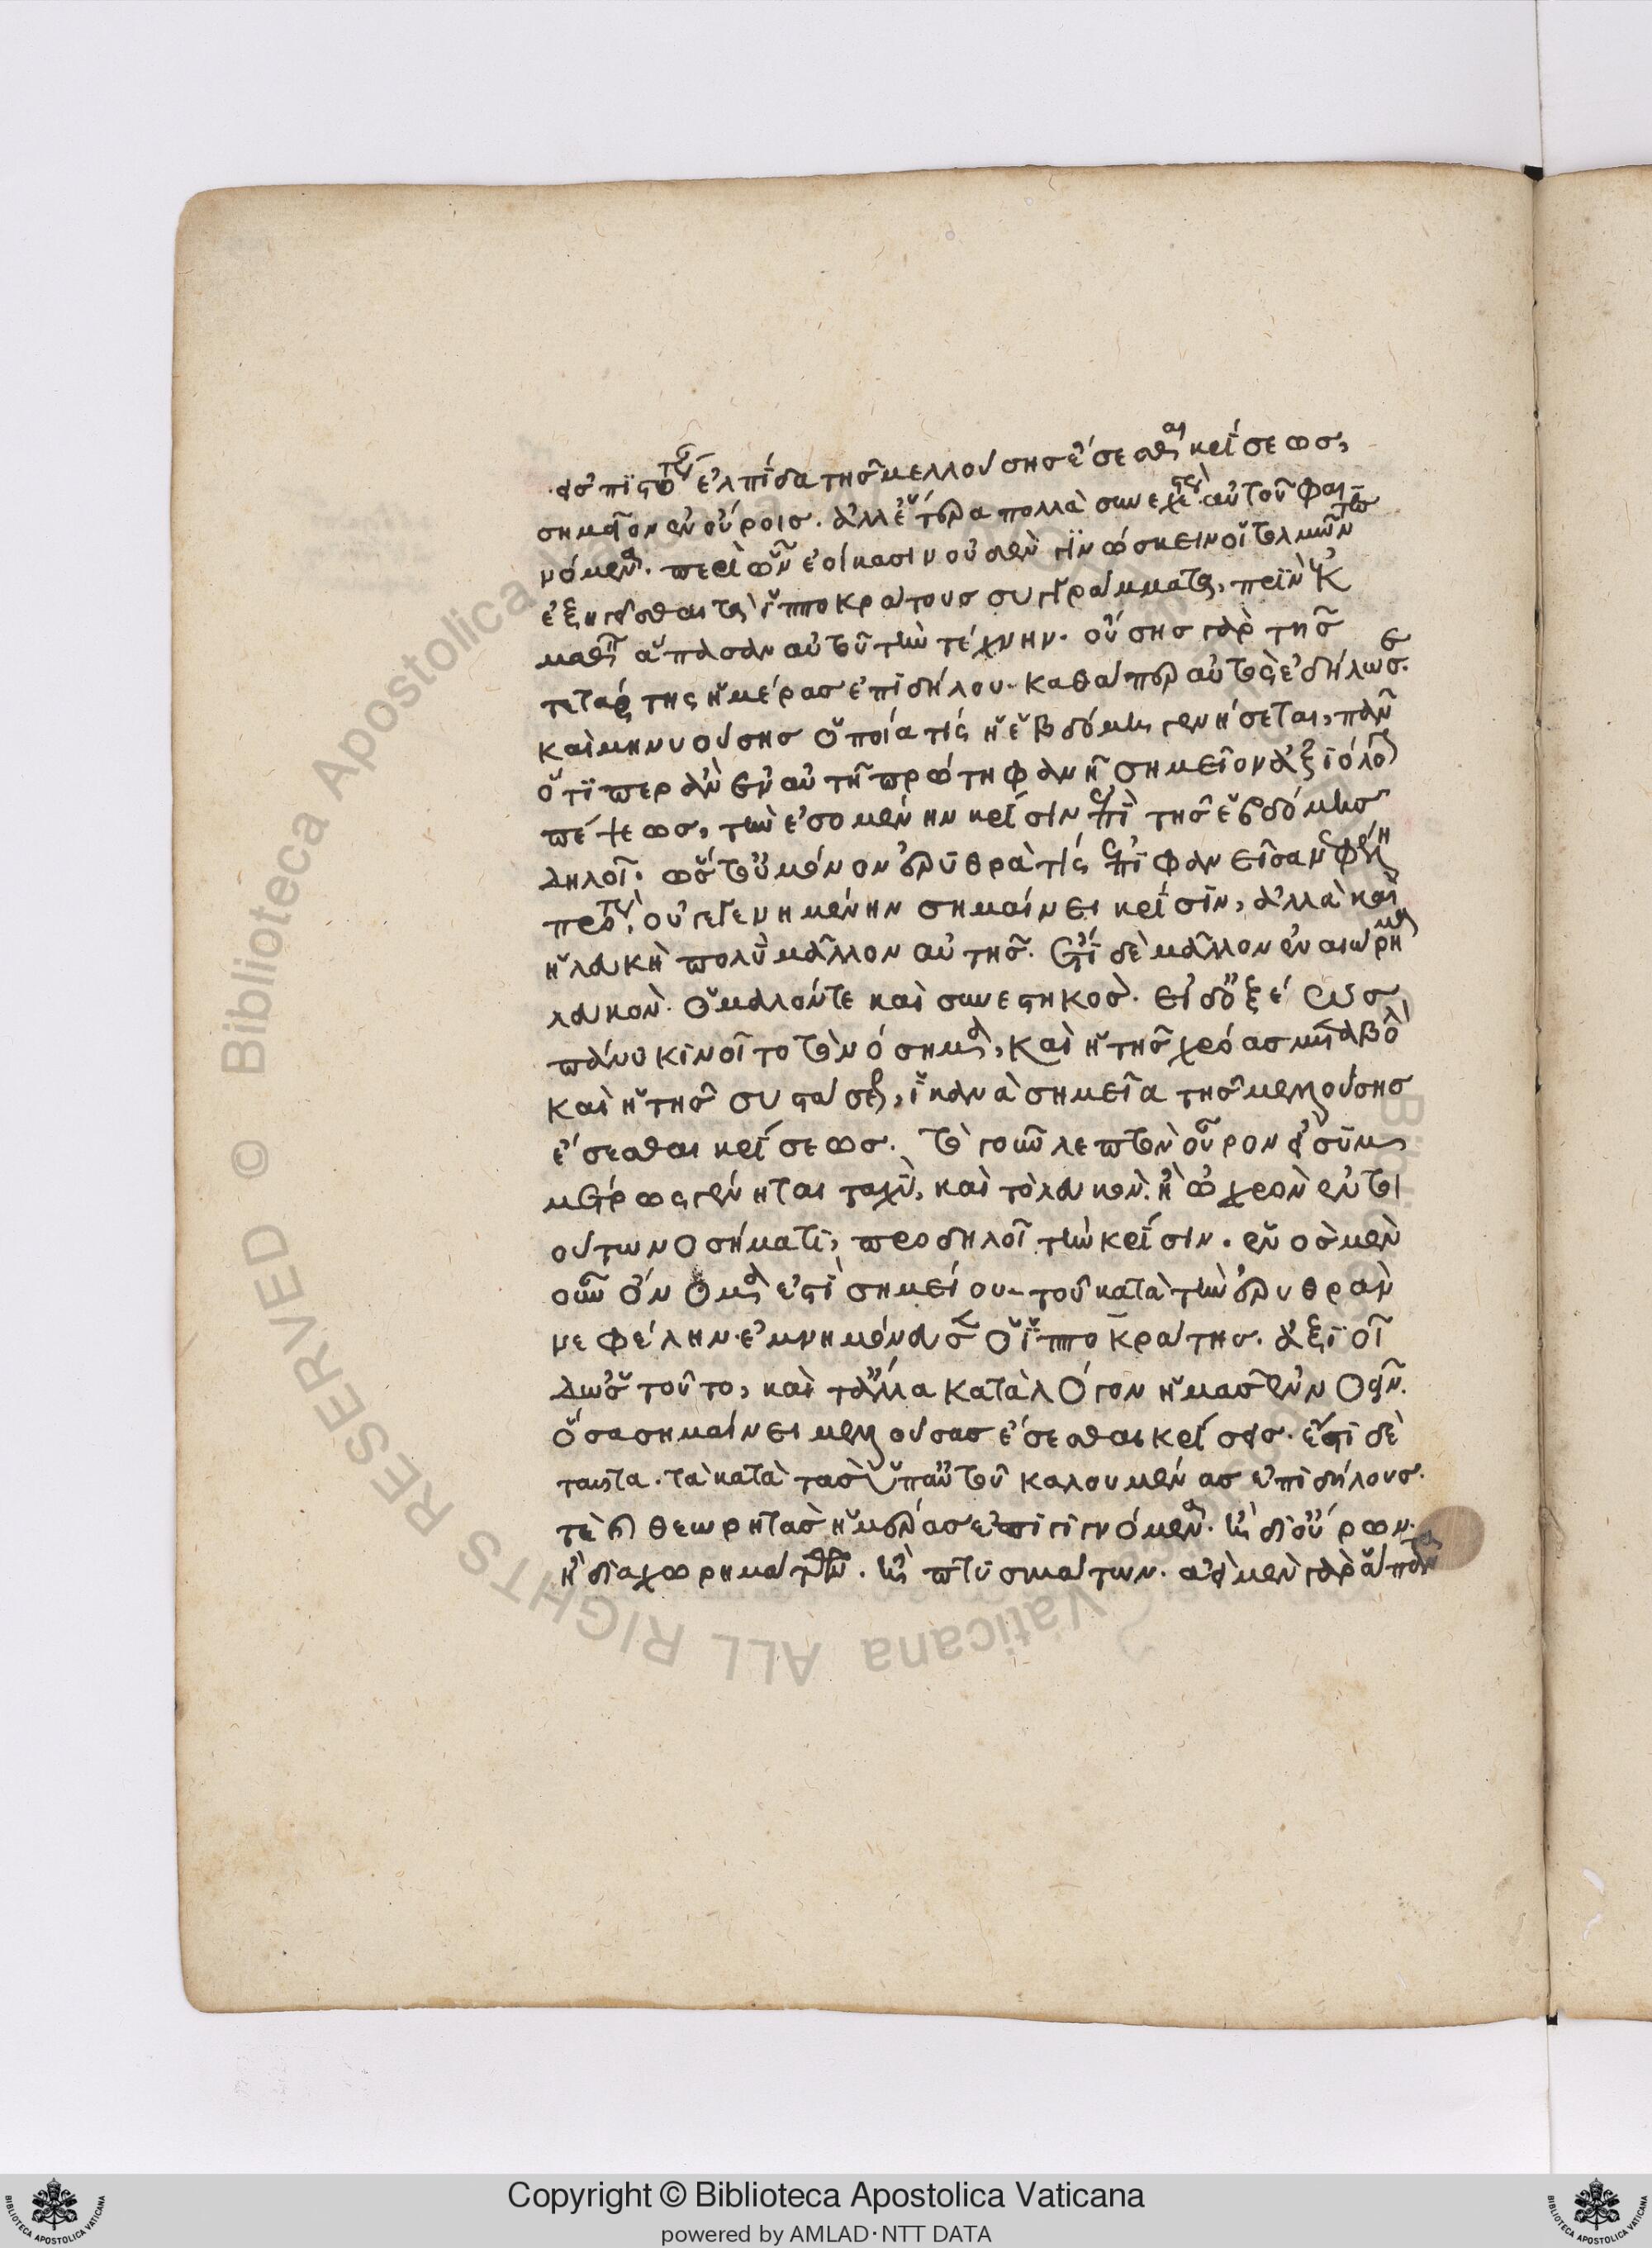 ἐλπίδα τῆς μελλούσης ἔσεσθαι κρίσεως,
σημεῖον ἐν οὔροις. ἀλλ' ἕτερα πολλὰ συνεχέστερον αὐτοῦ φαι-
νόμενα. περὶ ὧν ἐοίκασιν οὐδὲν γινώσκειν οἱ τολμῶντες
ἐξηγεῖσθαι τὰ ἱπποκράτους συγγράμματα, πρὶν ἐκ
μαθεῖν ἅπασαν αὐτοῦ τὴν τέχνην. οὔσης γὰρ τῆς
τετάρτης ἡμέρας ἐπιδήλου. καθάπερ αὐτὸς ἐδήλωσε.
καὶ μηνυούσης ὁποία τίς ἡ ἑβδόμη γενήσεται, πᾶν
ὅτιπερ ἂν ἐν αὐτῇ πρώτη φανῇ σημεῖον ἀξιόλογον
πέψεως, τὴν ἐσομένην κρίσιν ἐπὶ τῆς ἑβδόμης
δηλοῖ. ὥστ' οὐ μόνον ἐρυθρά τίς ἐπιφανεῖσα νεφέλη
πρὸ, οὐ γεγενημένην σημαίνει κρίσιν, ἀλλὰ καὶ
ἡ λευκὴ πολὺ μᾶλλον αὐτῆς. ἔτι δὲ μᾶλλον ἐναιώρημα
λευκὸν. ὁμαλόν τε καὶ συνεστηκός. εἰ δ' ὀξέως
πάνυ κινοῖτο τὸ νόσημα, καὶ ἡ τῆς χρόας μεταβολὴ
καὶ ἡ τῆς συστάσεως, ἱκανὰ σημεῖα τῆς μελλούσης
ἔσεσθαι κρίσεως. τὸ γοῦν λεπτὸν οὖρον εἰ συμ-
μέτρως γένηται παχὺ, καὶ τὸ λευκὸν. ἢ ὠχρὸν ἐν τοι-
ούτῳ νοσήματι, προδηλοῖ τὴν κρίσιν. ἑνὸς μὲν
οὖν ὀνόματι ἔτι σημείου τοῦ κατὰ τὴν ἐρυθρὰν
νεφέλην ἐμνημόνευσεν ὁ ἱπποκράτης. ἀξιοῖ
δ' ὡς τοῦτο, καὶ τἆλλα κατὰ λόγον ἡμᾶς ἐννοεῖν.
ὅσα σημαίνει μελλούσας ἔσεσθαι κρίσεις. ἔστι δὲ
ταῦτα. τὰ κατὰ τὰς ὑπ' αὐτοῦ καλουμένας ἐπιδήλους.
τε καὶ θεωρητὰς ἡμέρας ἐπιγιγνόμενα. ἢ δι' οὔρων.
ἢ διαχωρημάτων. ἢ πτυσμάτων. αἱ μὲν γὰρ ἄπεπτοι